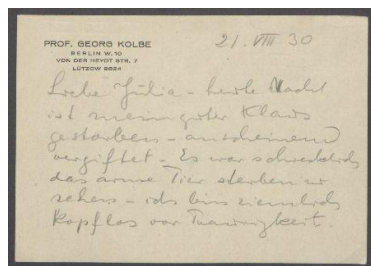 PROF. GEORG KOLBE
BERLIN W. 10
VON DER HEYDT STR. 7
LÜTZOW 9624
21. VIII 30
Liebe Julia - heute Nacht
ist mein guter Klaus
gestorben - anscheinend
vergiftet - Es war schrecklich
das arme Tier sterben zu
sehen - ich bin ziemlich
kopflos vor Traurigkeit.